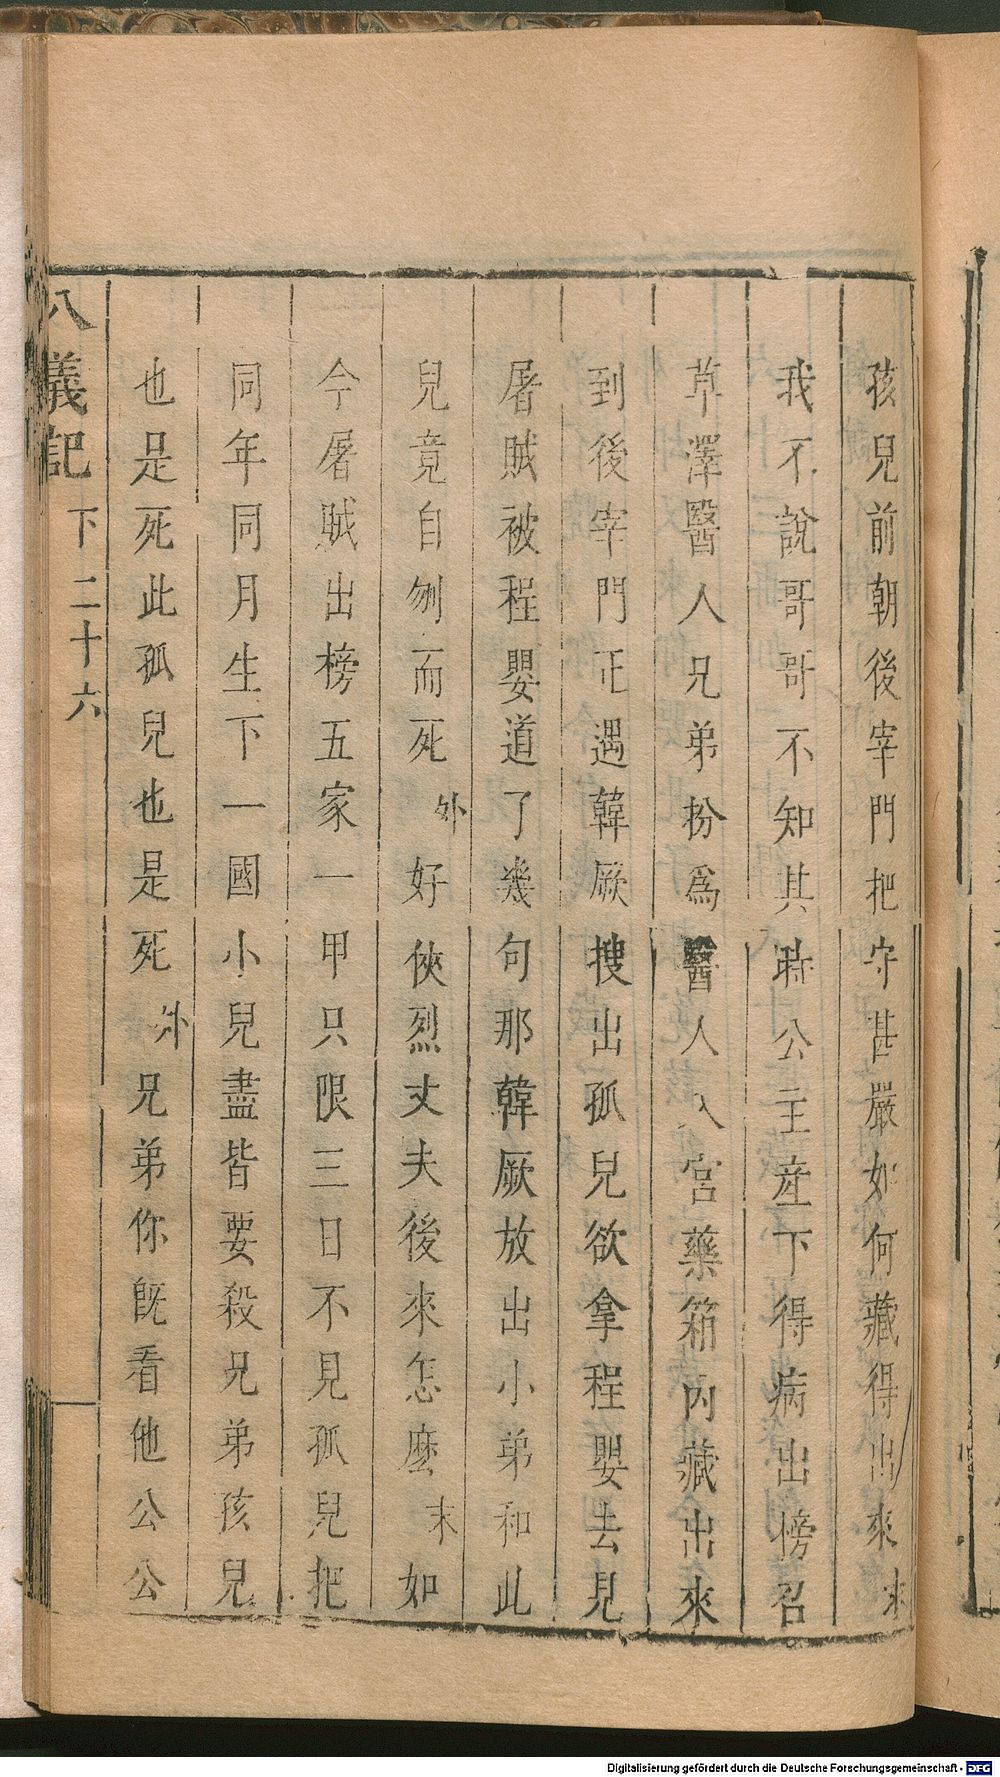 孩兒前朝後宰門把守甚嚴如何藏得出來末
我不說哥哥不知其時公主產下得病出榜召
草澤醫人兄弟扮爲醫人入宮藥箱內藏出來
到後宰門正遇韓厥搜出孤兒欲拿程嬰去見
屠賊被程嬰道了幾句那韓厥放出小弟和此
兒竟自刎而死外好俠烈丈夫後來怎麽末如
今屠賊出榜五家一甲只限三日不見孤兒把
同年同月生下一國小兒盡皆要殺兄弟孩兒
也是死此孤兒也是死外兄弟你旣看他公公
八義記 下 二十六
Digitalisierung gefördert durch die Deutsche Forschungsgemeinschaft - DFG